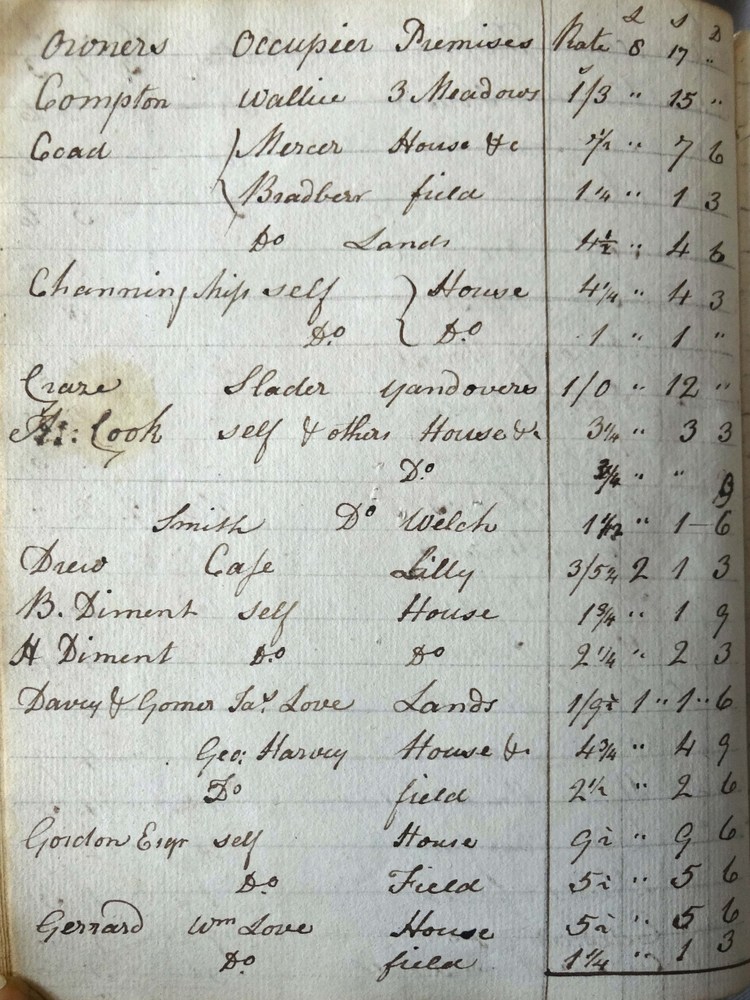 £ s D
Owners Occupier Premises Rate 8 17 "
Compton Wallie 3 Meadows 1/3 " 15 "
Coad Mercer House &c 7½ " 7 6
Bradberr field 1¼ " 1 3
Do Lands 4½ " 4 6
Channing ship self House 4¼ " 4 3
Do Do 1 " 1 "
Craze Slader yandovers 1/0 " 12 "
Cook self & others House &c 3¼ " 3 3
Do ¾ " " 9
Smith Do Welch 1½ " 1–6
Drew Case Lilly 3/5¼ 2 1 3
B. Diment self House 1¾ " 1 9
H Diment Do Do 2¼ " 2 3
Davey & Gomer Jas. Love Lands 1/9½ 1 " 1 " 6
Geo: Harvey House & 4¾ " 4 9
Do field 2½ " 2 6
Gordon Esqr self House 9½ " 9 6
Do Field 5½ " 5 6
Gerrard Wm Love House 5½ " 5 6
Do field 1¼ " 1 3